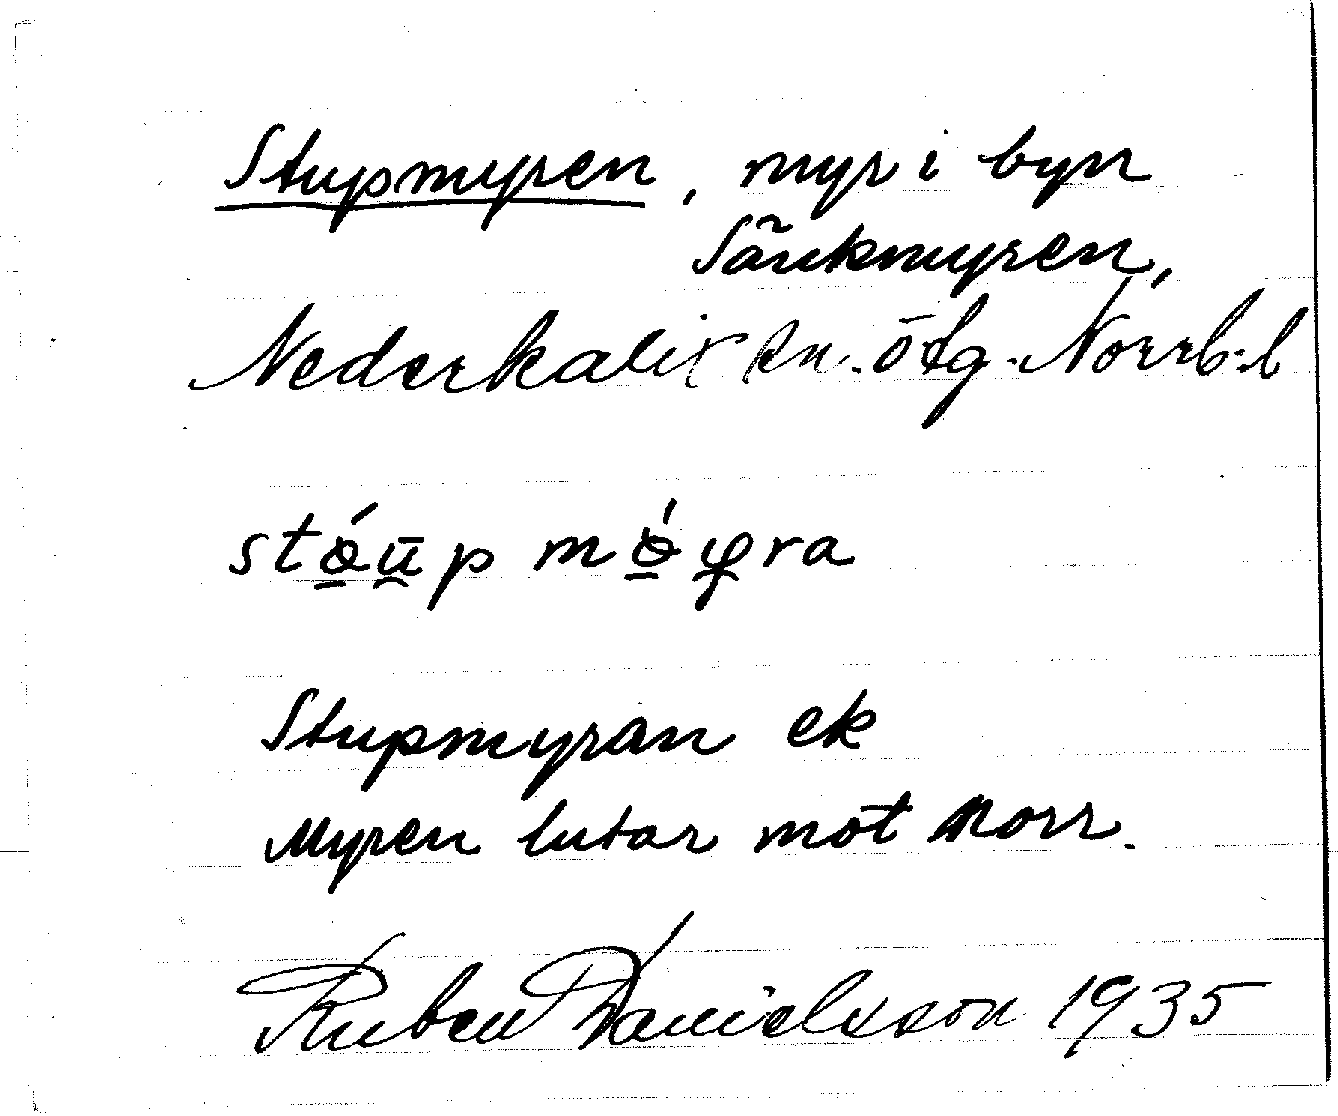 Stupmyren, myr i byn
Sänkmyren,
Nederkalix sn. ötg. Norrb. l
stǿ̠ū̯p mǿ̠y̯ra
Stupmyran ek
Myren lutar mot norr.
Ruben Danielsson 1935